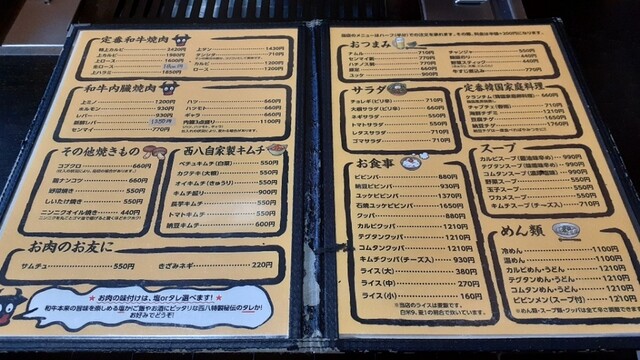 定番和牛焼肉
特上カルビ 2420円
上カルビ 1980円
上ロース 1600円
ロース
上ハラミ 1850円
上タン 1430円
タンシタ 710円
カルビ 1300円
ロース 1300円
和牛内臓焼肉
上ミノ 1200円
ホルモン 930円
レバー 930円
センマイ 770円
ハツ 660円
ハツモト 660円
ギャラ 660円
内臓3点盛り 1100円
その他焼きもの
コブクロ 660円
鶏ナンコツ 660円
砂肝焼き 550円
しいたけ焼き 550円
ニンニクオイル焼き 440円
西八自家製キムチ
ペチュキムチ(白菜) 550円
カクテキ(大根) 550円
オイキムチ(きゅうり) 550円
キムチ盛り 900円
長芋キムチ 550円
トマトキムチ 550円
納豆キムチ 600円
お肉のお友に
サムチュ 550円
きざみネギ 220円
★お肉の味付けは、塩orタレ選べます!★
和牛本来の旨味を楽しめる塩かご飯やお酒にピッタリな西八特製秘伝のタレか!
お好みでどうぞ!
おつまみ
チャムー 550円
センマイ刺し 770円
ハチノス酢 770円
豚足 660円
ユッケ 900円
チャンジャ 550円
韓国のり 440円
野菜スティック 440円
牛すじ煮込み 770円
サラダ
チョレギ(ピリ辛) 710円
大根サラダ(ピリ辛) 660円
ネギサラダ 550円
トマトサラダ 550円
レタスサラダ 710円
ゴマサラダ 710円
定番韓国家庭料理
チャプチェ(野菜) 710円
海鮮チヂミ 1210円
豆腐キムチ 1650円
納豆キムチ 1760円
お食事
ビビンバ 880円
納豆ビビンバ 910円
ユッケビビンバ 1370円
石焼ユッケビビンバ 1650円
クッパ 880円
カルビクッパ 1210円
テグタンクッパ 1210円
コムタンクッパ 1210円
キムチクッパ(チーズ入) 930円
ライス(大) 380円
ライス(中) 270円
ライス(小) 160円
※当店のライスは麦飯です。
スープ
カルビスープ 990円
テグタンスープ 990円
コムタンスープ 990円
野菜スープ 550円
玉子スープ 550円
ワカメスープ 550円
キムチスープ(チーズ入) 710円
めん類
冷めん 1100円
温めん 1100円
カルビめん・うどん 1210円
テグタンめん・うどん 1210円
コムタンめん・うどん 1210円
ビビンメン(スープ付) 1210円